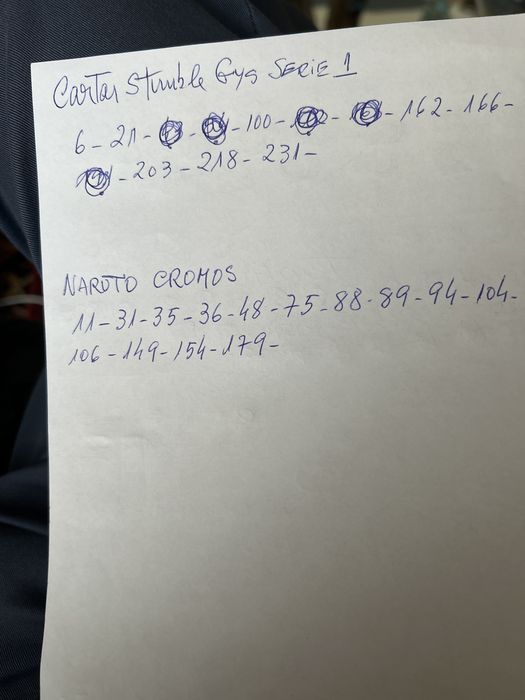 Cartas Stumble Gys SERIE 1
6 - 21 - - - 100 - - - 162 - 166 -
- 203 - 218 - 231 -
NARUTO CROMOS
11 - 31 - 35 - 36 - 48 - 75 - 88 - 89 - 94 - 104 -
106 - 149 - 154 - 179 -